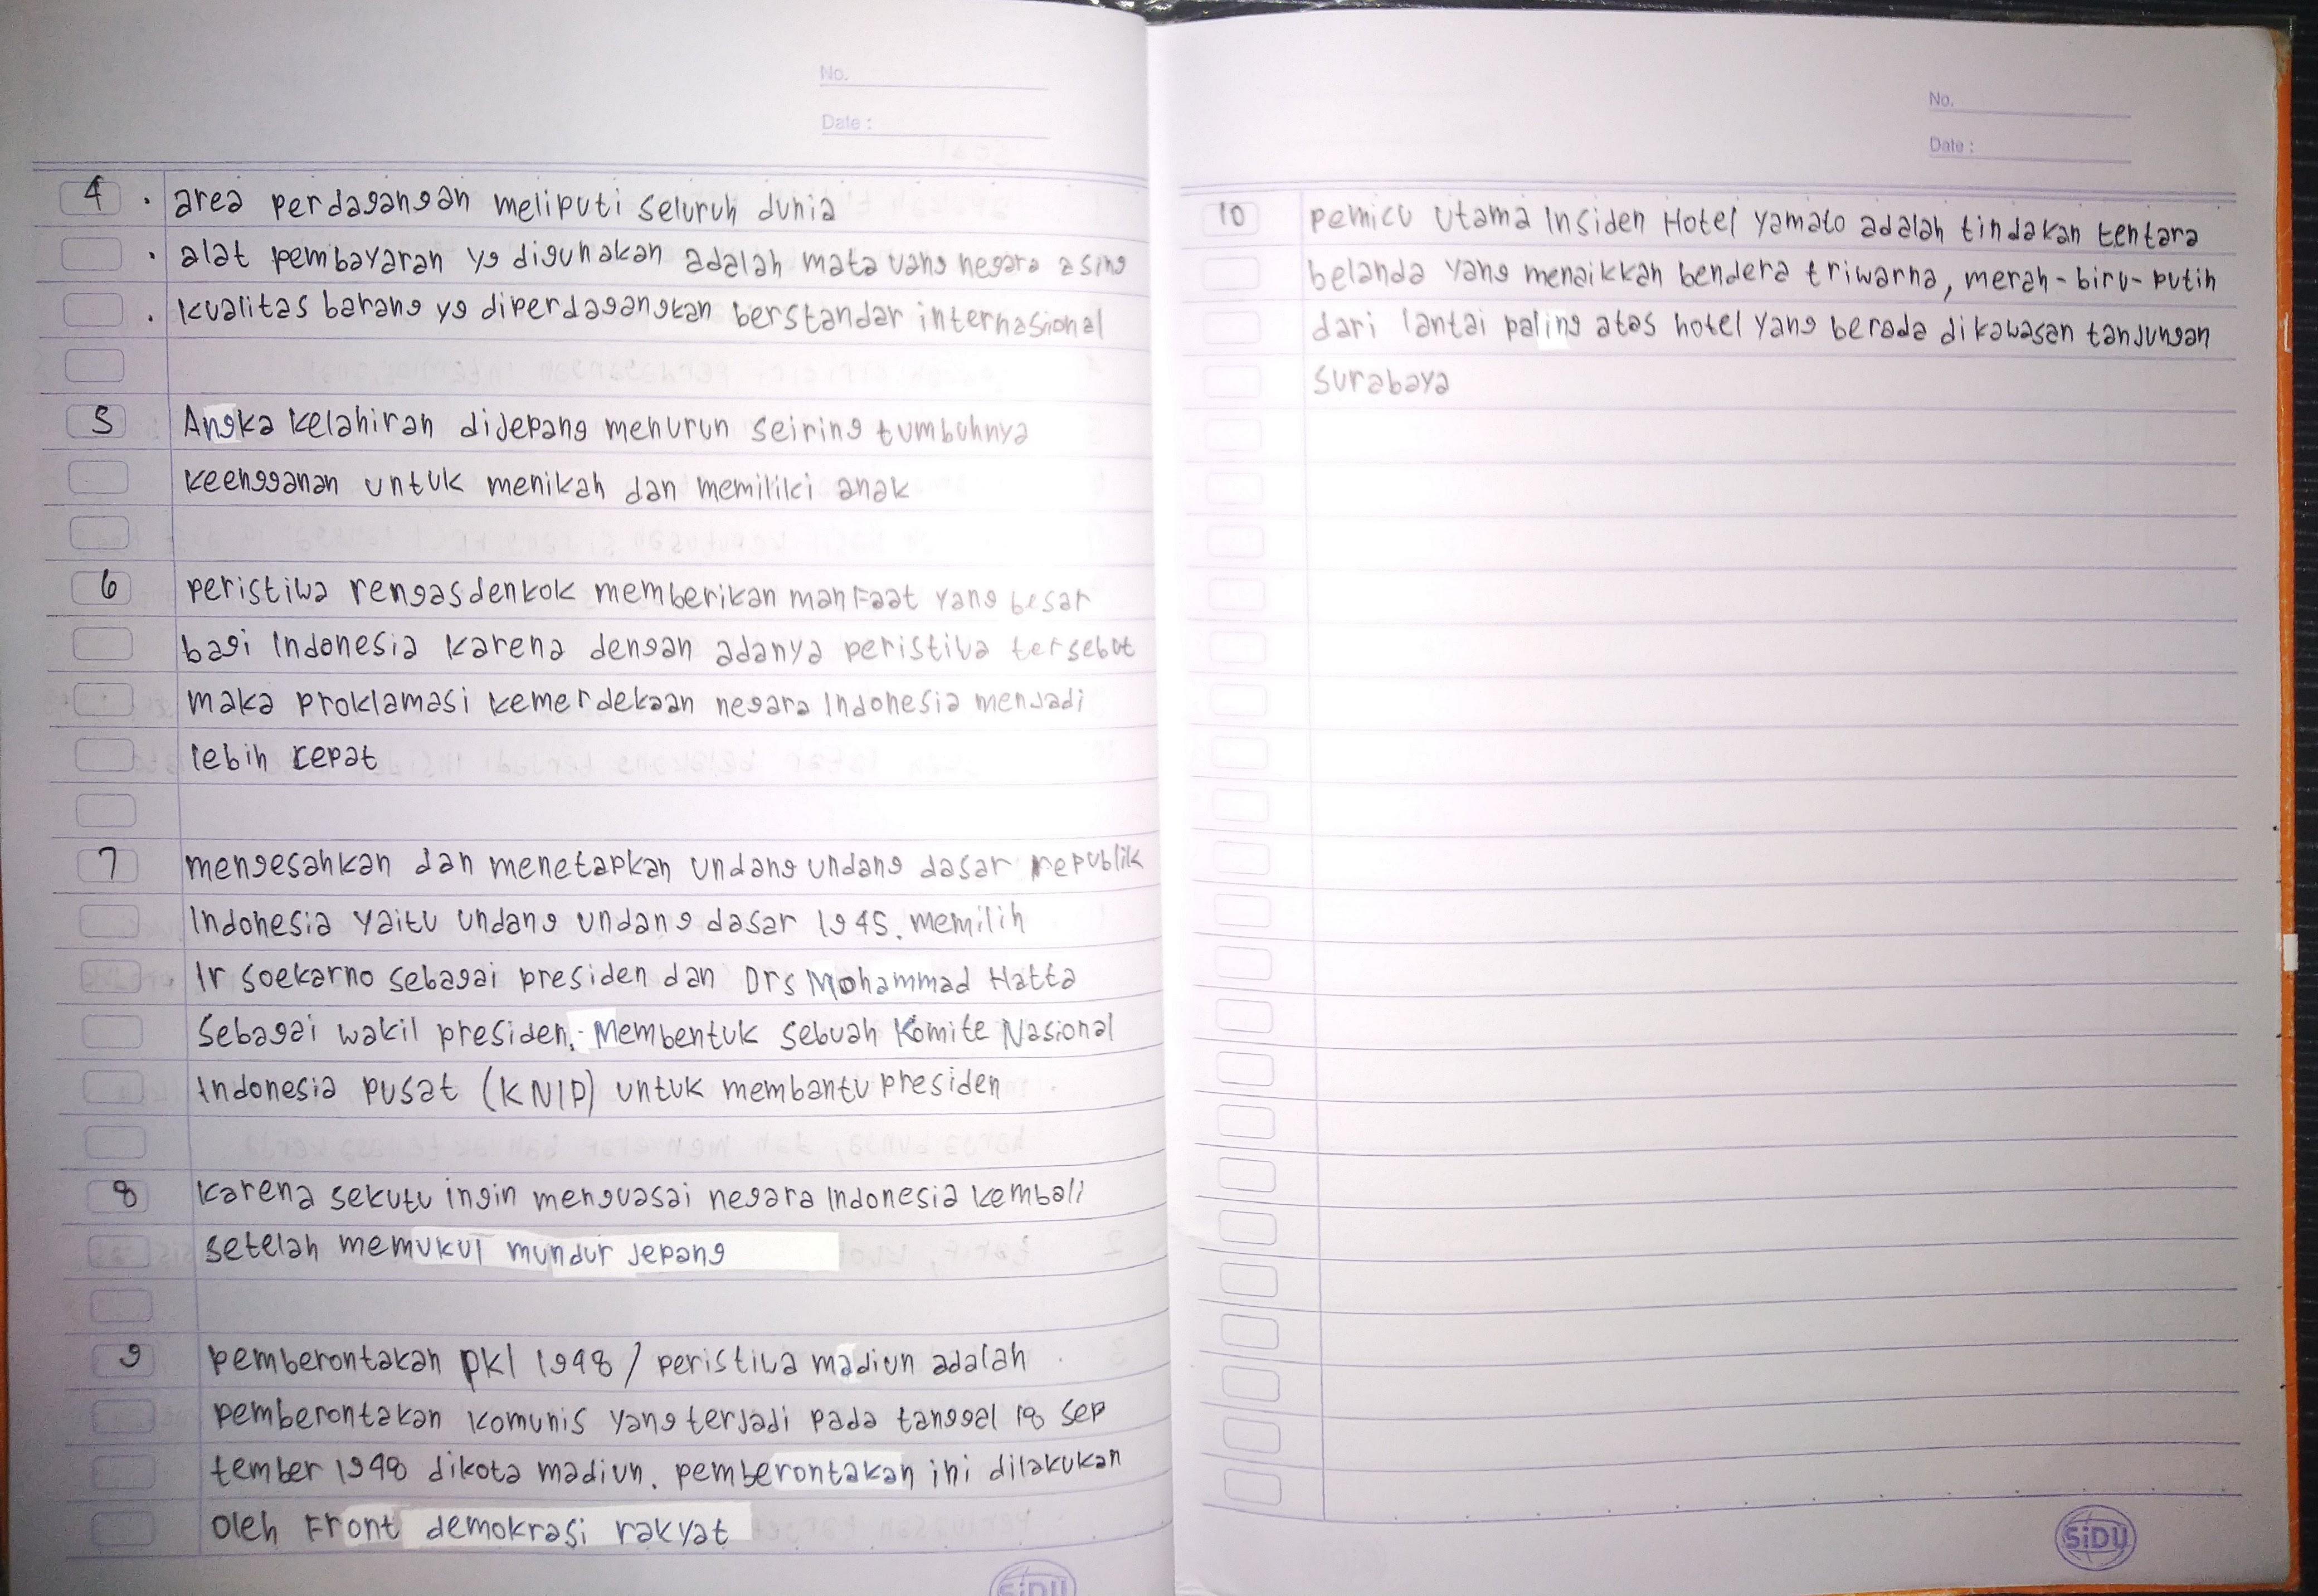 No.
Date :
4 . area perdagangan meliputi seluruh dunia
. alat pembayaran yg digunakan adalah mata uang negara asing
. kualitas barang yg diperdagangkan berstandar internasional
5 Angka kelahiran dijepang menurun seiring tumbuhnya
keengganan untuk menikah dan memiliki anak
6 peristiwa rengasdenkok memberikan manfaat yang besar
bagi Indonesia karena dengan adanya peristiwa tersebut
maka proklamasi kemerdekaan negara Indonesia menjadi
lebih cepat
7 mengesahkan dan menetapkan undang undang dasar republik
Indonesia yaitu undang undang dasar 1945. memilih
Ir soekarno sebagai presiden dan Drs Mohammad Hatta
sebagai wakil presiden. Membentuk sebuah Komite Nasional
Indonesia pusat (KNIP) untuk membantu presiden
8 karena sekutu ingin menguasai negara Indonesia kembali
setelah memukul mundur jepang
9 pemberontakan pkI 1948 / peristiwa madiun adalah
pemberontakan komunis yang terjadi pada tanggal 18 sep
tember 1948 dikota madiun. pemberontakan ini dilakukan
oleh Front demokrasi rakyat
SiDU
No.
Date :
10 pemicu utama Insiden Hotel yamato adalah tindakan tentara
belanda yang menaikkan bendera triwarna, merah-biru-putih
dari lantai paling atas hotel yang berada dikawasan tanjungan
surabaya
SiDU